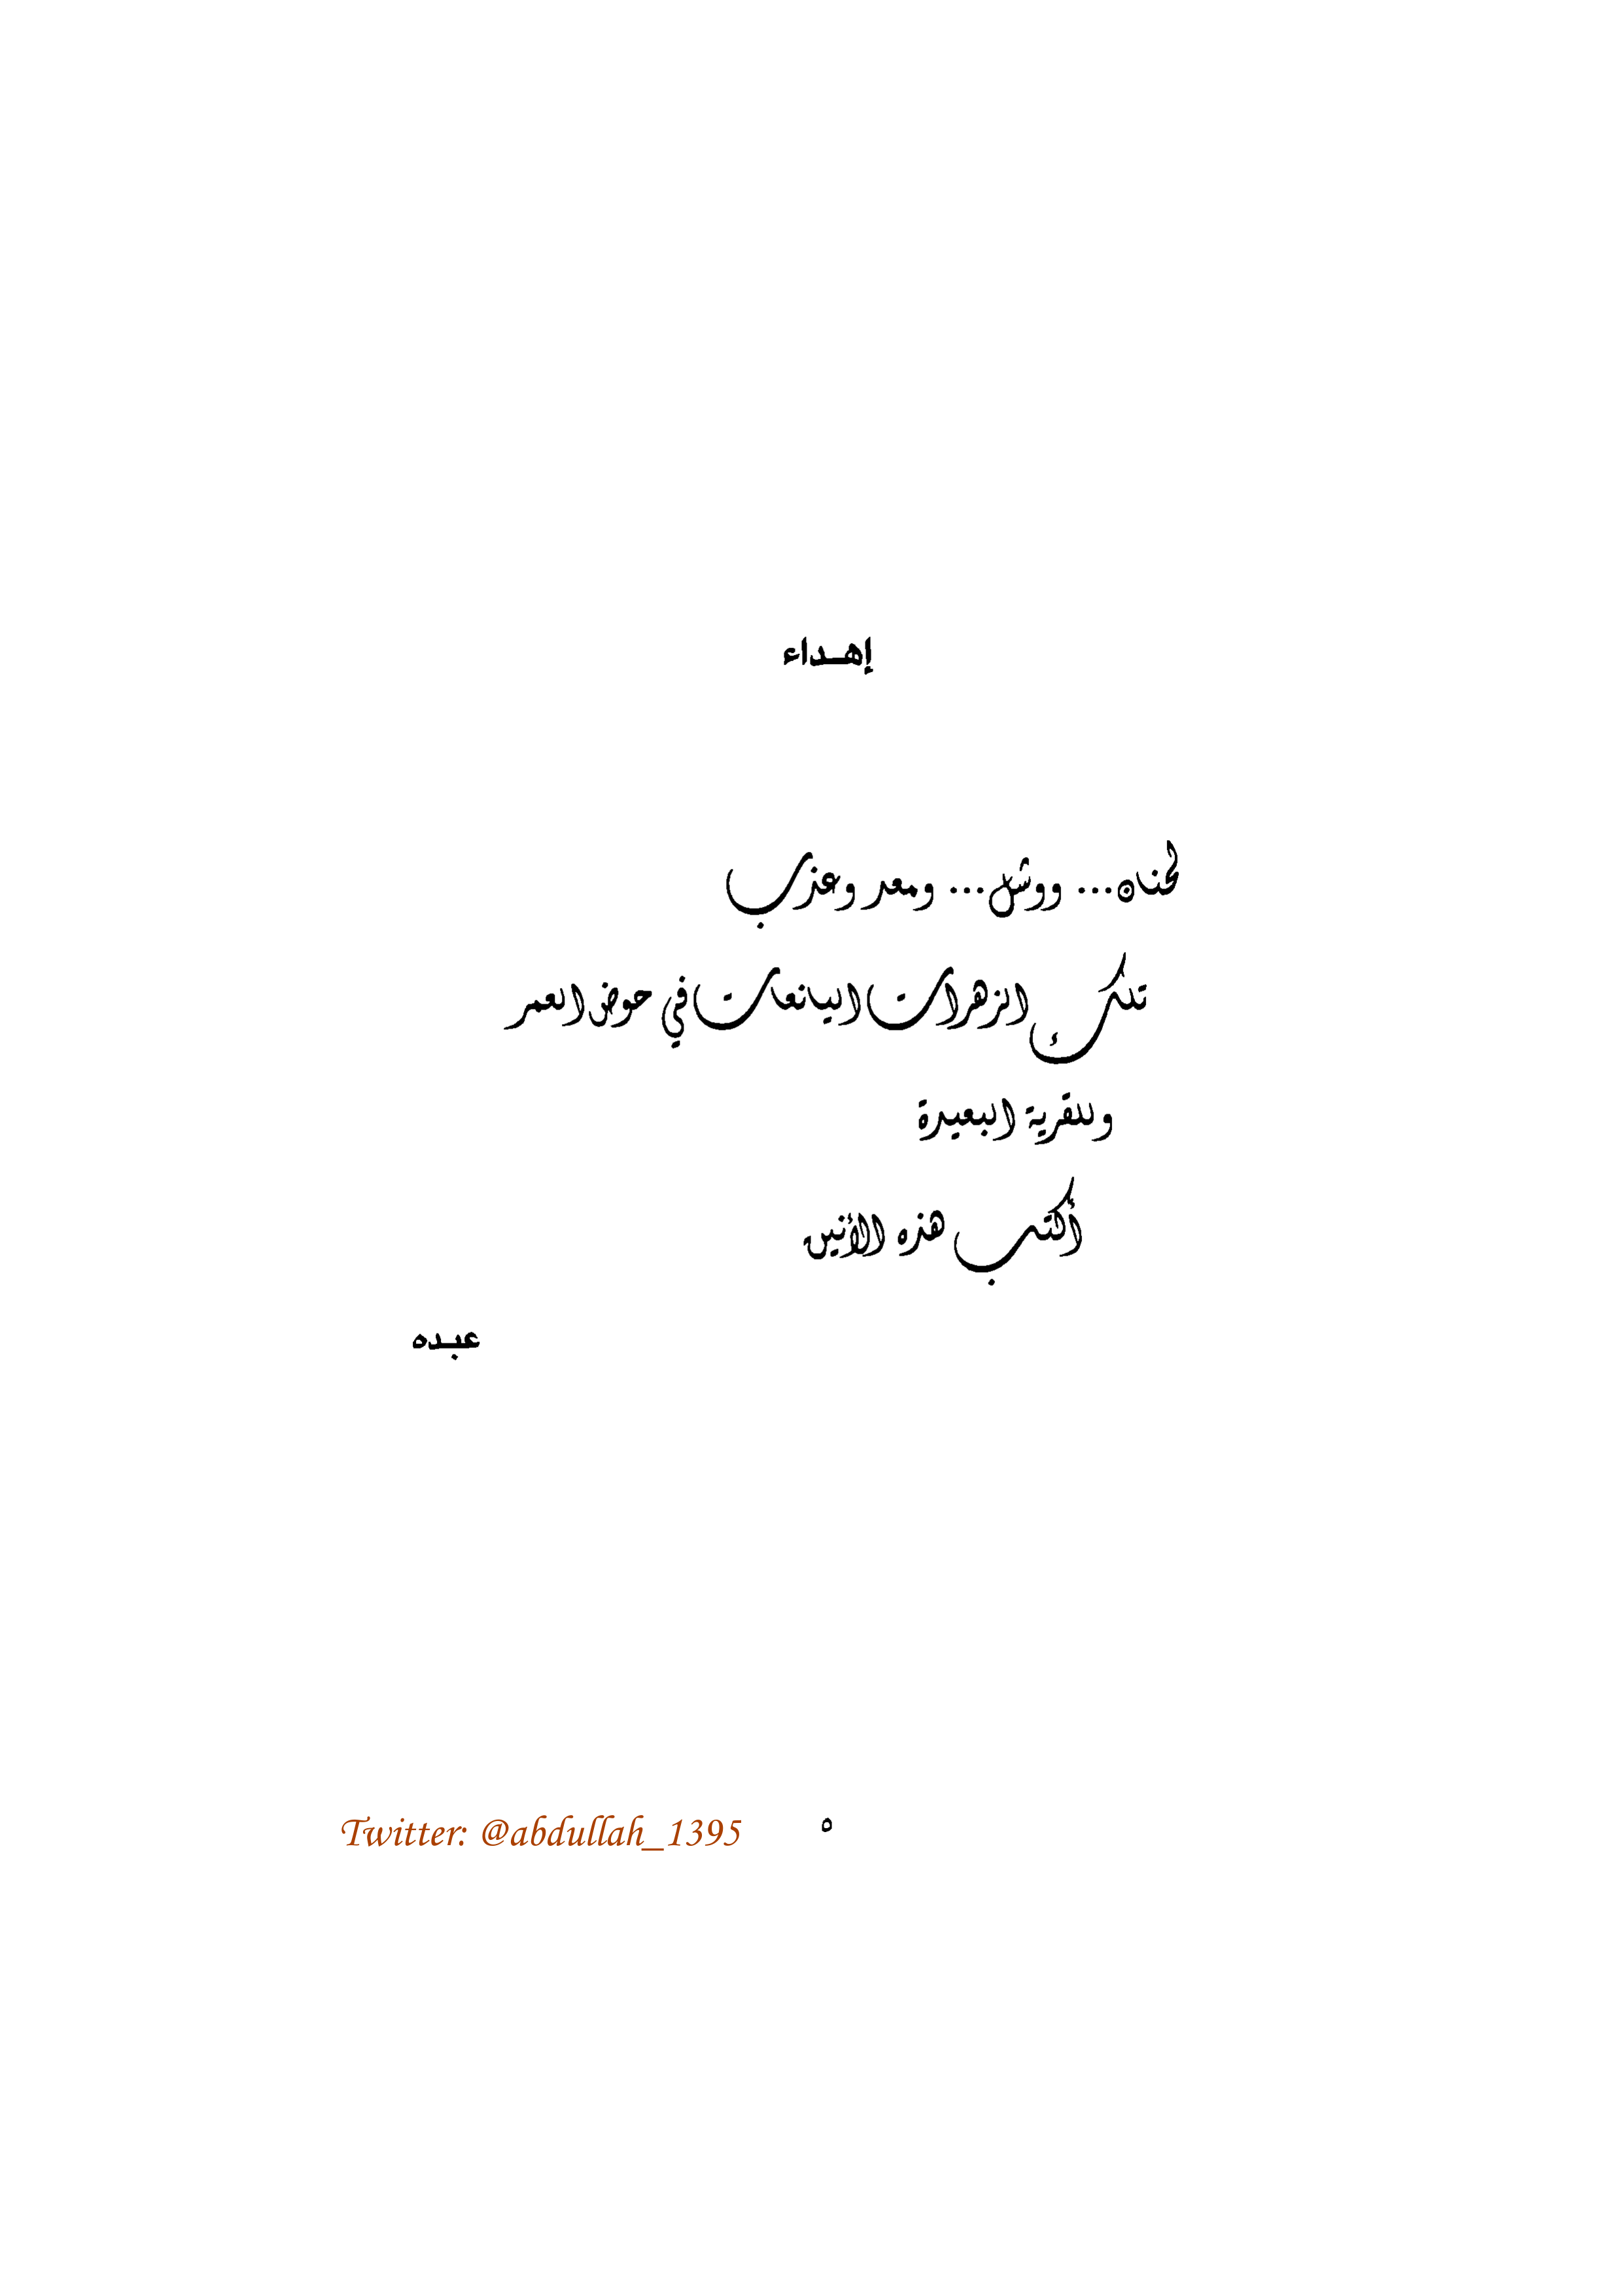 إهداء
لحنان... ووشل... ومعد وعذب
تلك الزهرات اليانعات في حوض العمر
وللقرية البعيدة
أكتب هذه الأنين
عبده
Twitter: @abdullah_1395 ٥